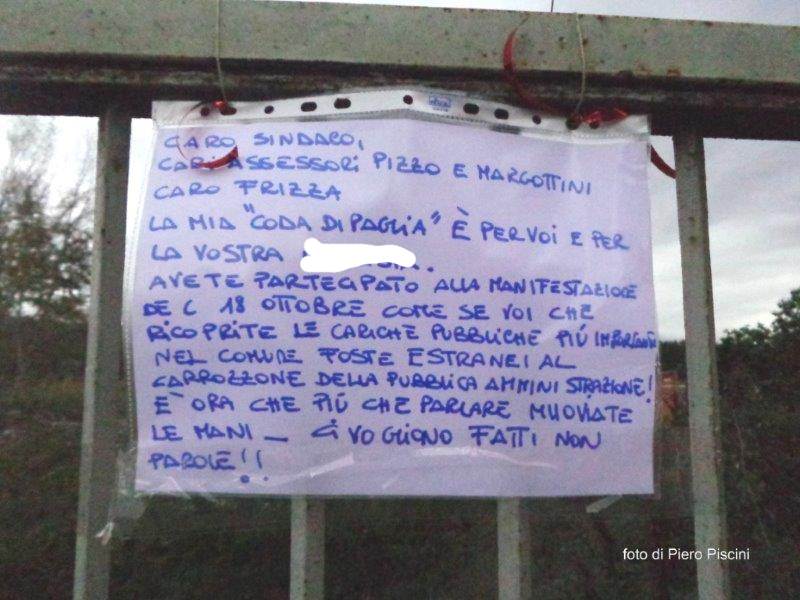 CARO SINDACO,
CARI ASSESSORI PIZZO E MARGOTTINI
CARO FRIZZA
LA MIA "CODA DI PAGLIA" È PER VOI E PER
LA VOSTRA
AVETE PARTECIPATO ALLA MANIFESTAZIONE
DEL 18 OTTOBRE COME SE VOI CHE
RICOPRITE LE CARICHE PUBBLICHE PIÚ IMPORTANTI
NEL COMUNE FOSTE ESTRANEI AL
CARROZZONE DELLA PUBBLICA AMMINISTRAZIONE!
E' ORA CHE PIÚ CHE PARLARE MUOVIATE
LE MANI _ CI VOGLIONO FATTI NON
PAROLE!!
foto di Piero Piscini